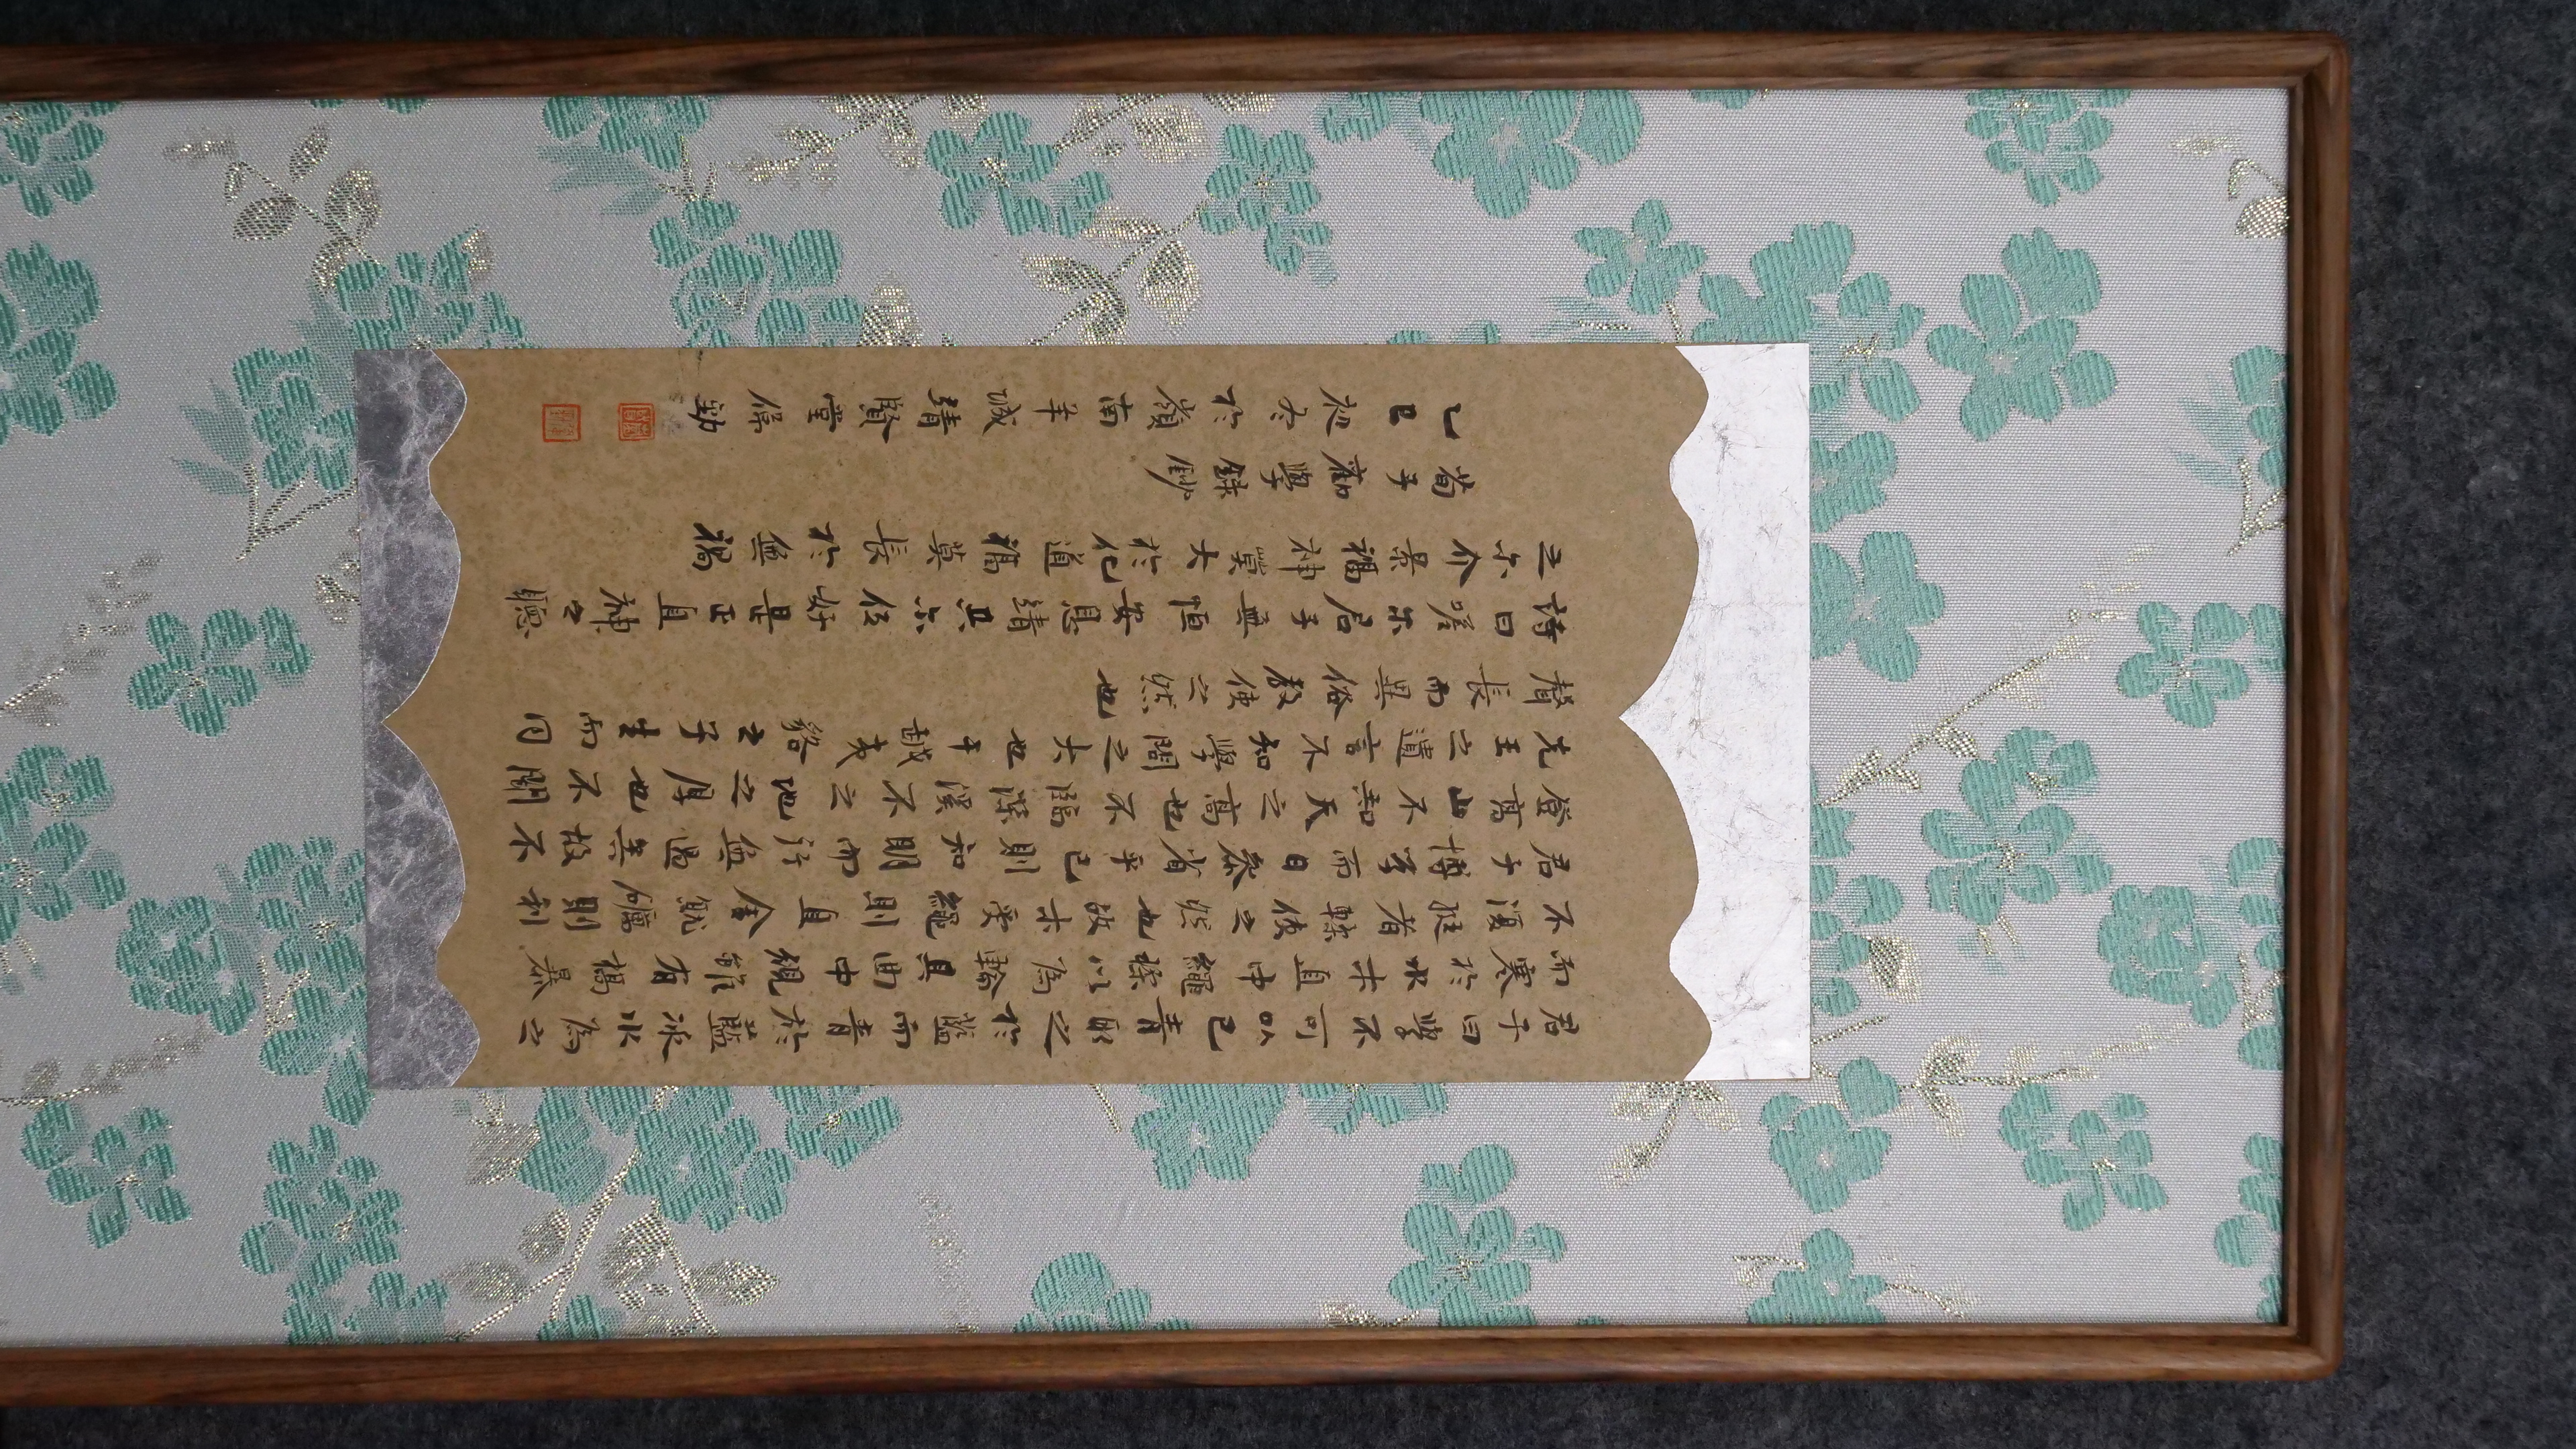 君子曰學不可以已青取之於藍而青於藍冰水為之
而寒於水木直中繩輮以為輪其曲中規雖有槁暴
不復挺者輮使之然也故木受繩則直金就礪則利
君子博學而日參省乎己則知明而行無過矣故不
登高山不知天之高也不臨深溪不之地之厚也不聞
先王之遺言不知學問之大也干越夷貉之子生而同
聲長而異俗教使之然也
詩曰嗟尔君子無恒安息靖共尔位好是正直神之聽
之尔介景福神莫大於化道福莫長於無禍
荀子勸學錄鈔
乙巳初冬於嶺南羊城靖賢堂保